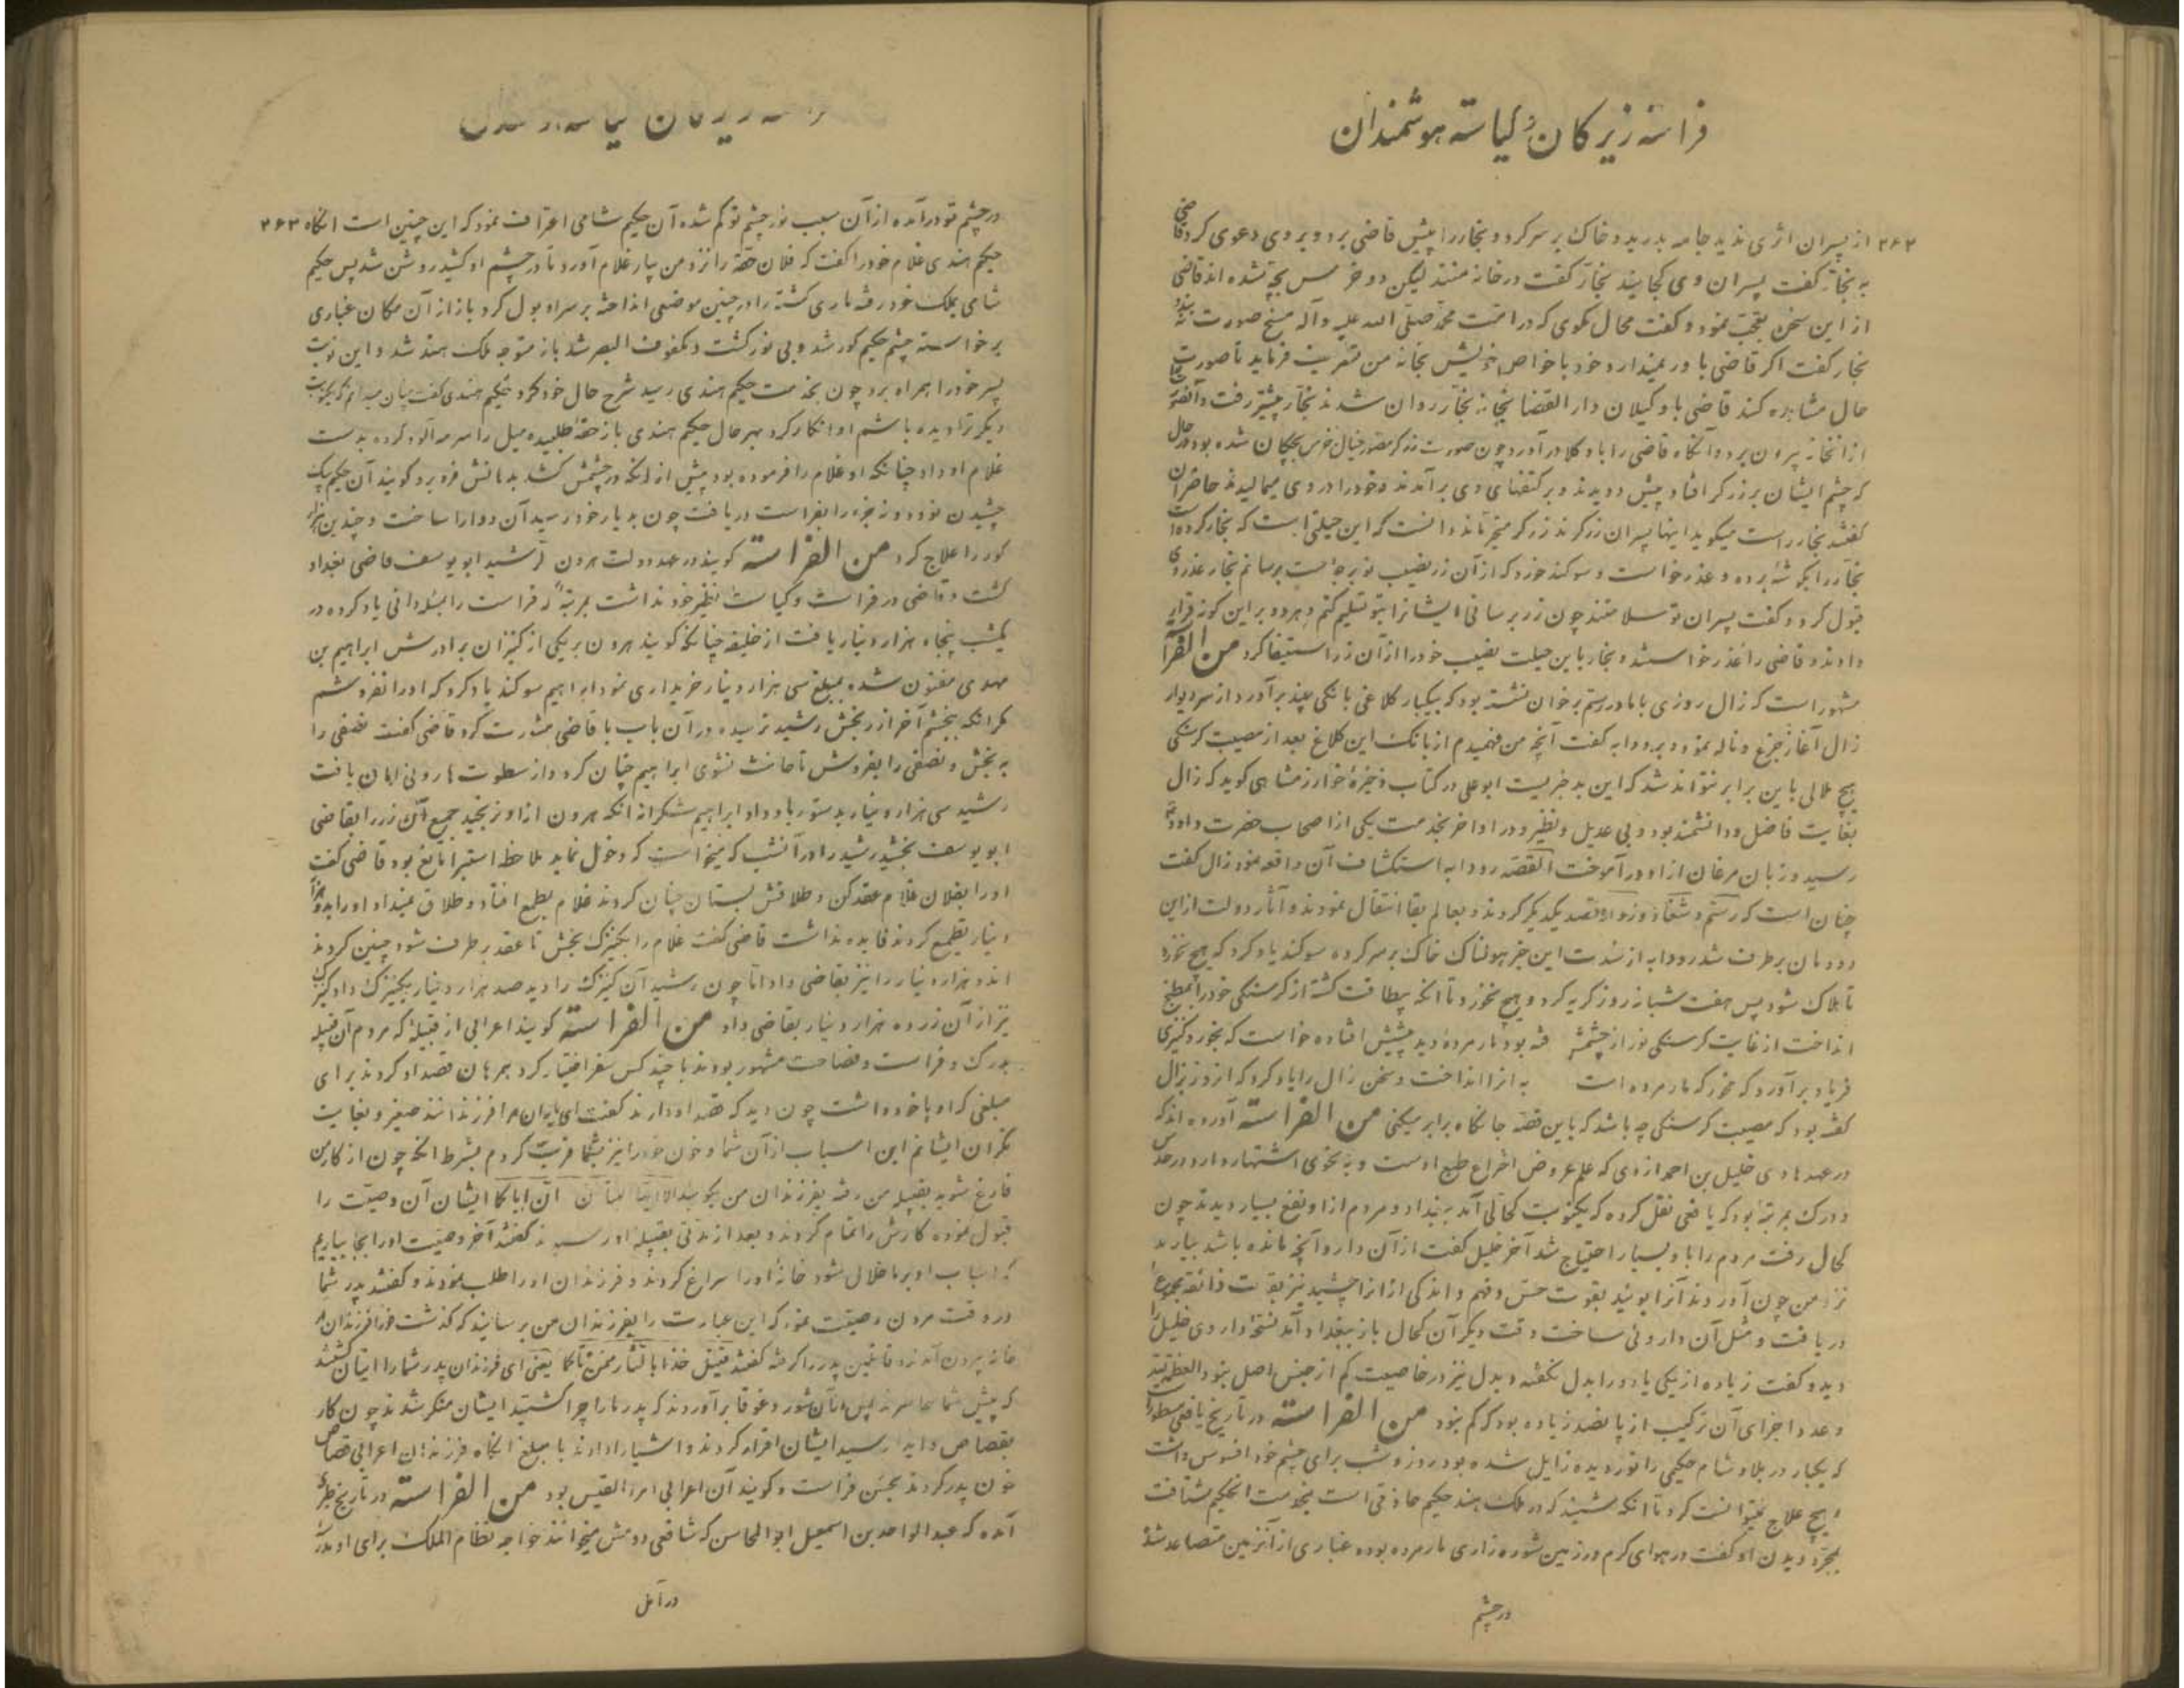 فراسته زیرکان و کیاسته هوشمندان
۲۶۲ از پسران اثری ندید جامه بدرید و خاک بر سر کرد و نجار را پیش قاضی برد و بر وی دعوی کرد قاضی
به نجار گفت پسران وی کجایند نجار گفت در خانه منند لیکن دو خرس بچه شده اند قاضی
از این سخن تعجب نمود و گفت محال مگوی که در امت محمد صلی الله علیه و آله مسخ صورت نه بندد
نجار گفت اگر قاضی باور نمیدارد خود با خواص خویش بخانه من تشریف فرماید تا صورت
حال مشاهده کند قاضی با وکیلان دار القضا بخانه نجار روان شدند نجار پیشتر رفت و
از انخانه بیرون برد و آنگاه قاضی را با وکلا در آورد چون صورت زرگر خیال خرس بچکان شده بود در حال
که چشم ایشان بر زرگر افتاد پیش دویدند و بر کتفهای وی برآمدند و خود را در وی میمالیدند حاضران
گفتند نجار راست میگوید اینها پسران زرگرند زرگر متحیر ماند دانست که این حیلتی است که نجار کرده است
نجار را بگوشه برده و عذر خواست و سوگند خورد که از آن زر نصیب تو بر جاست برسانم نجار عذر وی
قبول کرد و گفت پسران تو سلامتند چون زر برسانی ایشانرا بتو تسلیم کنم و هر دو بر این گونه قرار
دادند و قاضی را عذر خواستند و نجار باین حیلت نصیب خود را از آن زر استیفا کرد من الفراسة
مشهور است که زال روزی با مادر رستم بر خوان نشسته بود که بیکبار کلاغی بانگی بلند برآورد از سر دیوار
زال آغاز جزع و ناله نمود و برودابه گفت آنچه من فهمیدم از بانک این کلاغ بعد از مصیبت گرسنگی
هیچ ملالی باین برابر نتواند شد که این بد خبریست ابو علی در کتاب ذخیره خوارزمشاهی گوید که زال
بغایت فاضل و دانشمند بود و بی عدیل و نظیر و در اواخر بخدمت یکی از اصحاب حضرت داود
رسید و زبان مرغان از او در آموخت القصه رودابه استکشاف آن واقعه نمود زال گفت
چنان است که رستم و شغاد و زواره قصد یکدیگر کردند و بعالم بقا انتقال نمودند و آثار دولت از این
دودمان برطرف شد رودابه از شدت این خبر هولناک خاک بر سر کرده سوگند یاد کرد که هیچ نخورد
تا هلاک شود پس هفت شبانه روز گریه کرد و هیچ نخورد تا انکه بیطاقت گشته از گرسنگی خود را بمطبخ
انداخت از غایت گرسنگی نور از چشمش رفته بود مار مرده دید پیشش افتاده خواست که بخورد کنیزی
فریاد برآورد که مخور که مار مرده است به انرا انداخت و سخن زال را یاد کرد که انروز زال
گفته بود که مصیبت گرسنگی چه باشد که باین قصه جانکاه برابر میکنی من الفراسة آورده اند که
در عهد هادی خلیل بن احمد ازدی که علم عروض اختراع طبع اوست و به نحوی اشتهار دارد در حدس
و درک بمرتبه بود که یافعی نقل کرده که یکنوبت کحالی آمد ببغداد و مردم از او نفع بسیار دیدند چون
کحال رفت مردم را با و بسیار احتیاج شد آخر خلیل گفت از آن دارو آنچه مانده باشد بیارند
نزد من چون آوردند آنرا بوئید بقوت حس و فهم و اندکی از انرا چشید نیز بقوت ذائقه مجموع
دریافت و مثل آن داروئی ساخت وقت دیگر آن کحال باز ببغداد آمد نسخه داروی خلیل را
دید و گفت زیاده از یکی یا دو را بدل نگفته و بدل نیز در خاصیت کم از جنس اصل نبود
و عدد اجزای آن ترکیب از پانصد زیاده بود که کم نبود من الفراسة در تاریخ یافعی مسطور است
که یکبار در بلاد شام حکیمی را نور دیده زایل شده بود روز و شب برای چشم خود افسوس داشت
هیچ علاج نمیتوانست کرد تا انکه شنید که در ملک هند حکیم حاذقی است بخدمت انحکیم شتافت
بمجرد دیدن او گفت در هوای گرم در زمین شوره زاری مار مرده بوده غباری از آنزمین متصاعد شد
در چشم
در چشم تو درآمده از آن سبب نور چشم تو کم شده آن حکیم شامی اعتراف نمود که این چنین است انگاه ۲۶۳
حکیم هندی غلام خود را گفت که فلان حقه را نزد من بیار غلام آورد تا در چشم او کشید روشن شد پس حکیم
شامی بملک خود رفته ماری کشته را در چنین موضعی انداخته بر سر او بول کرد باز از آن مکان غباری
برخواسته چشم حکیم کور شد و بی نور گشت و مکفوف البصر شد باز متوجه ملک هند شد و این نوبت
پسر خود را همراه برد چون بخدمت حکیم هندی رسید شرح حال خود کرد حکیم هندی گفت
دیگر ترا دیده باشم او انکار کرد بهر حال حکیم هندی باز حقه طلبیده میل را سرمه آلود کرده بدست
غلام او داد چنانکه او غلام را فرموده بود پیش از آنکه در چشمش کشد بدهانش فرو برد گویند آن حکیم بیک
چشیدن نود و نه جزء را بفراست دریافت چون بدیار خود رسید آن دوا را ساخت و چندین هزار
کور را علاج کرد من الفراسة گویند در عهد دولت هرون الرشید ابو یوسف قاضی بغداد
گشت و قاضی در فراست و کیاست نظیر خود نداشت بمرتبهٔ که فراست را
یکشب پنجاه هزار دینار یافت از خلیفه چنانکه گویند هرون بر یکی از کنیزان برادرش ابراهیم بن
مهدی مفتون شده بمبلغ سی هزار دینار خریداری نمود ابراهیم سوگند یاد کرد که او را نفروشم
مگر انکه ببخشم آخر از رنجش رشید ترسیده در آن باب با قاضی مشورت کرد قاضی گفت نصفی را
به بخش و نصفی را بفروش تا حانث نشوی ابراهیم چنان کرد و از سطوت هارونی امان یافت
رشید سی هزار دینار بدستور باو داد ابراهیم شکرانه انکه هرون از او نرنجید جمیع آن زر را بقاضی
ابو یوسف بخشید رشید را در آنشب که میخواست که دخول نماید ملاحظه استبرا مانع بود قاضی گفت
او را بفلان غلام عقد کن و طلاقش بستان چنان کردند غلام بطمع افتاد و طلاق نمیداد او را بده هزار
دینار تطمیع کردند فایده نداشت قاضی گفت غلام را بکنیزک بخش تا عقد برطرف شود چنین کردند
انده هزار دینار را نیز بقاضی داد اما چون رشید آن کنیزک را دید صد هزار دینار بکنیزک داد کنیزک
نیز از آن زر ده هزار دینار بقاضی داد من الفراسة گویند اعرابی از قبیله که مردم آن قبیله
بدرک و فراست و فصاحت مشهور بودند با چند کس سفر اختیار کرد همرهان قصد او کردند برای
مبلغی که او با خود داشت چون دید که قصد او دارند گفت ای یاران مرا فرزندانند صغیر و بغایت
نگران ایشانم این اسباب از آن شما و خون خود را نیز بشما کردم بشرط انکه چون از کار من
فارغ شوید بقبیله من رفته بفرزندان من بگوئید ان اباکما ایشان آن وصیت را
قبول نموده کارش را تمام کردند و بعد از مدتی بقبیله او رسیدند گفتند آخر وصیت او را بجا بیاریم
که اسباب او بر ما حلال شود خانه او را سراغ کردند و فرزندان او را طلب نمودند و گفتند پدر شما
در وقت مردن وصیت نمود که این عبارت را بفرزندان من برسانید که گذشت
خانه بیرون آمدند و قاتلین پدر را گرفته گفتند قتیل خذا بالثار ممن اتاکما یعنی ای فرزندان پدر شما را اینان کشتند
که پیش شما حاضرند شور و غوغا برآوردند که پدر ما را چرا کشتید ایشان منکر شدند چون کار
بقصاص رسید ایشان اقرار کردند و اشیا را دادند با مبلغ انگاه فرزندان اعرابی قصاص
خون پدر کردند بحسن فراست و گویند آن اعرابی امرء القیس بود من الفراسة در تاریخ
آمده که عبد الواحد بن اسمعیل ابو المحاسن که شافعی دومش میخوانند خواجه نظام الملک برای او مدرسه
در آمل